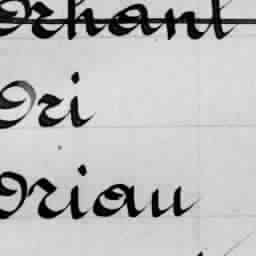 Orhant
Ori
Oriau